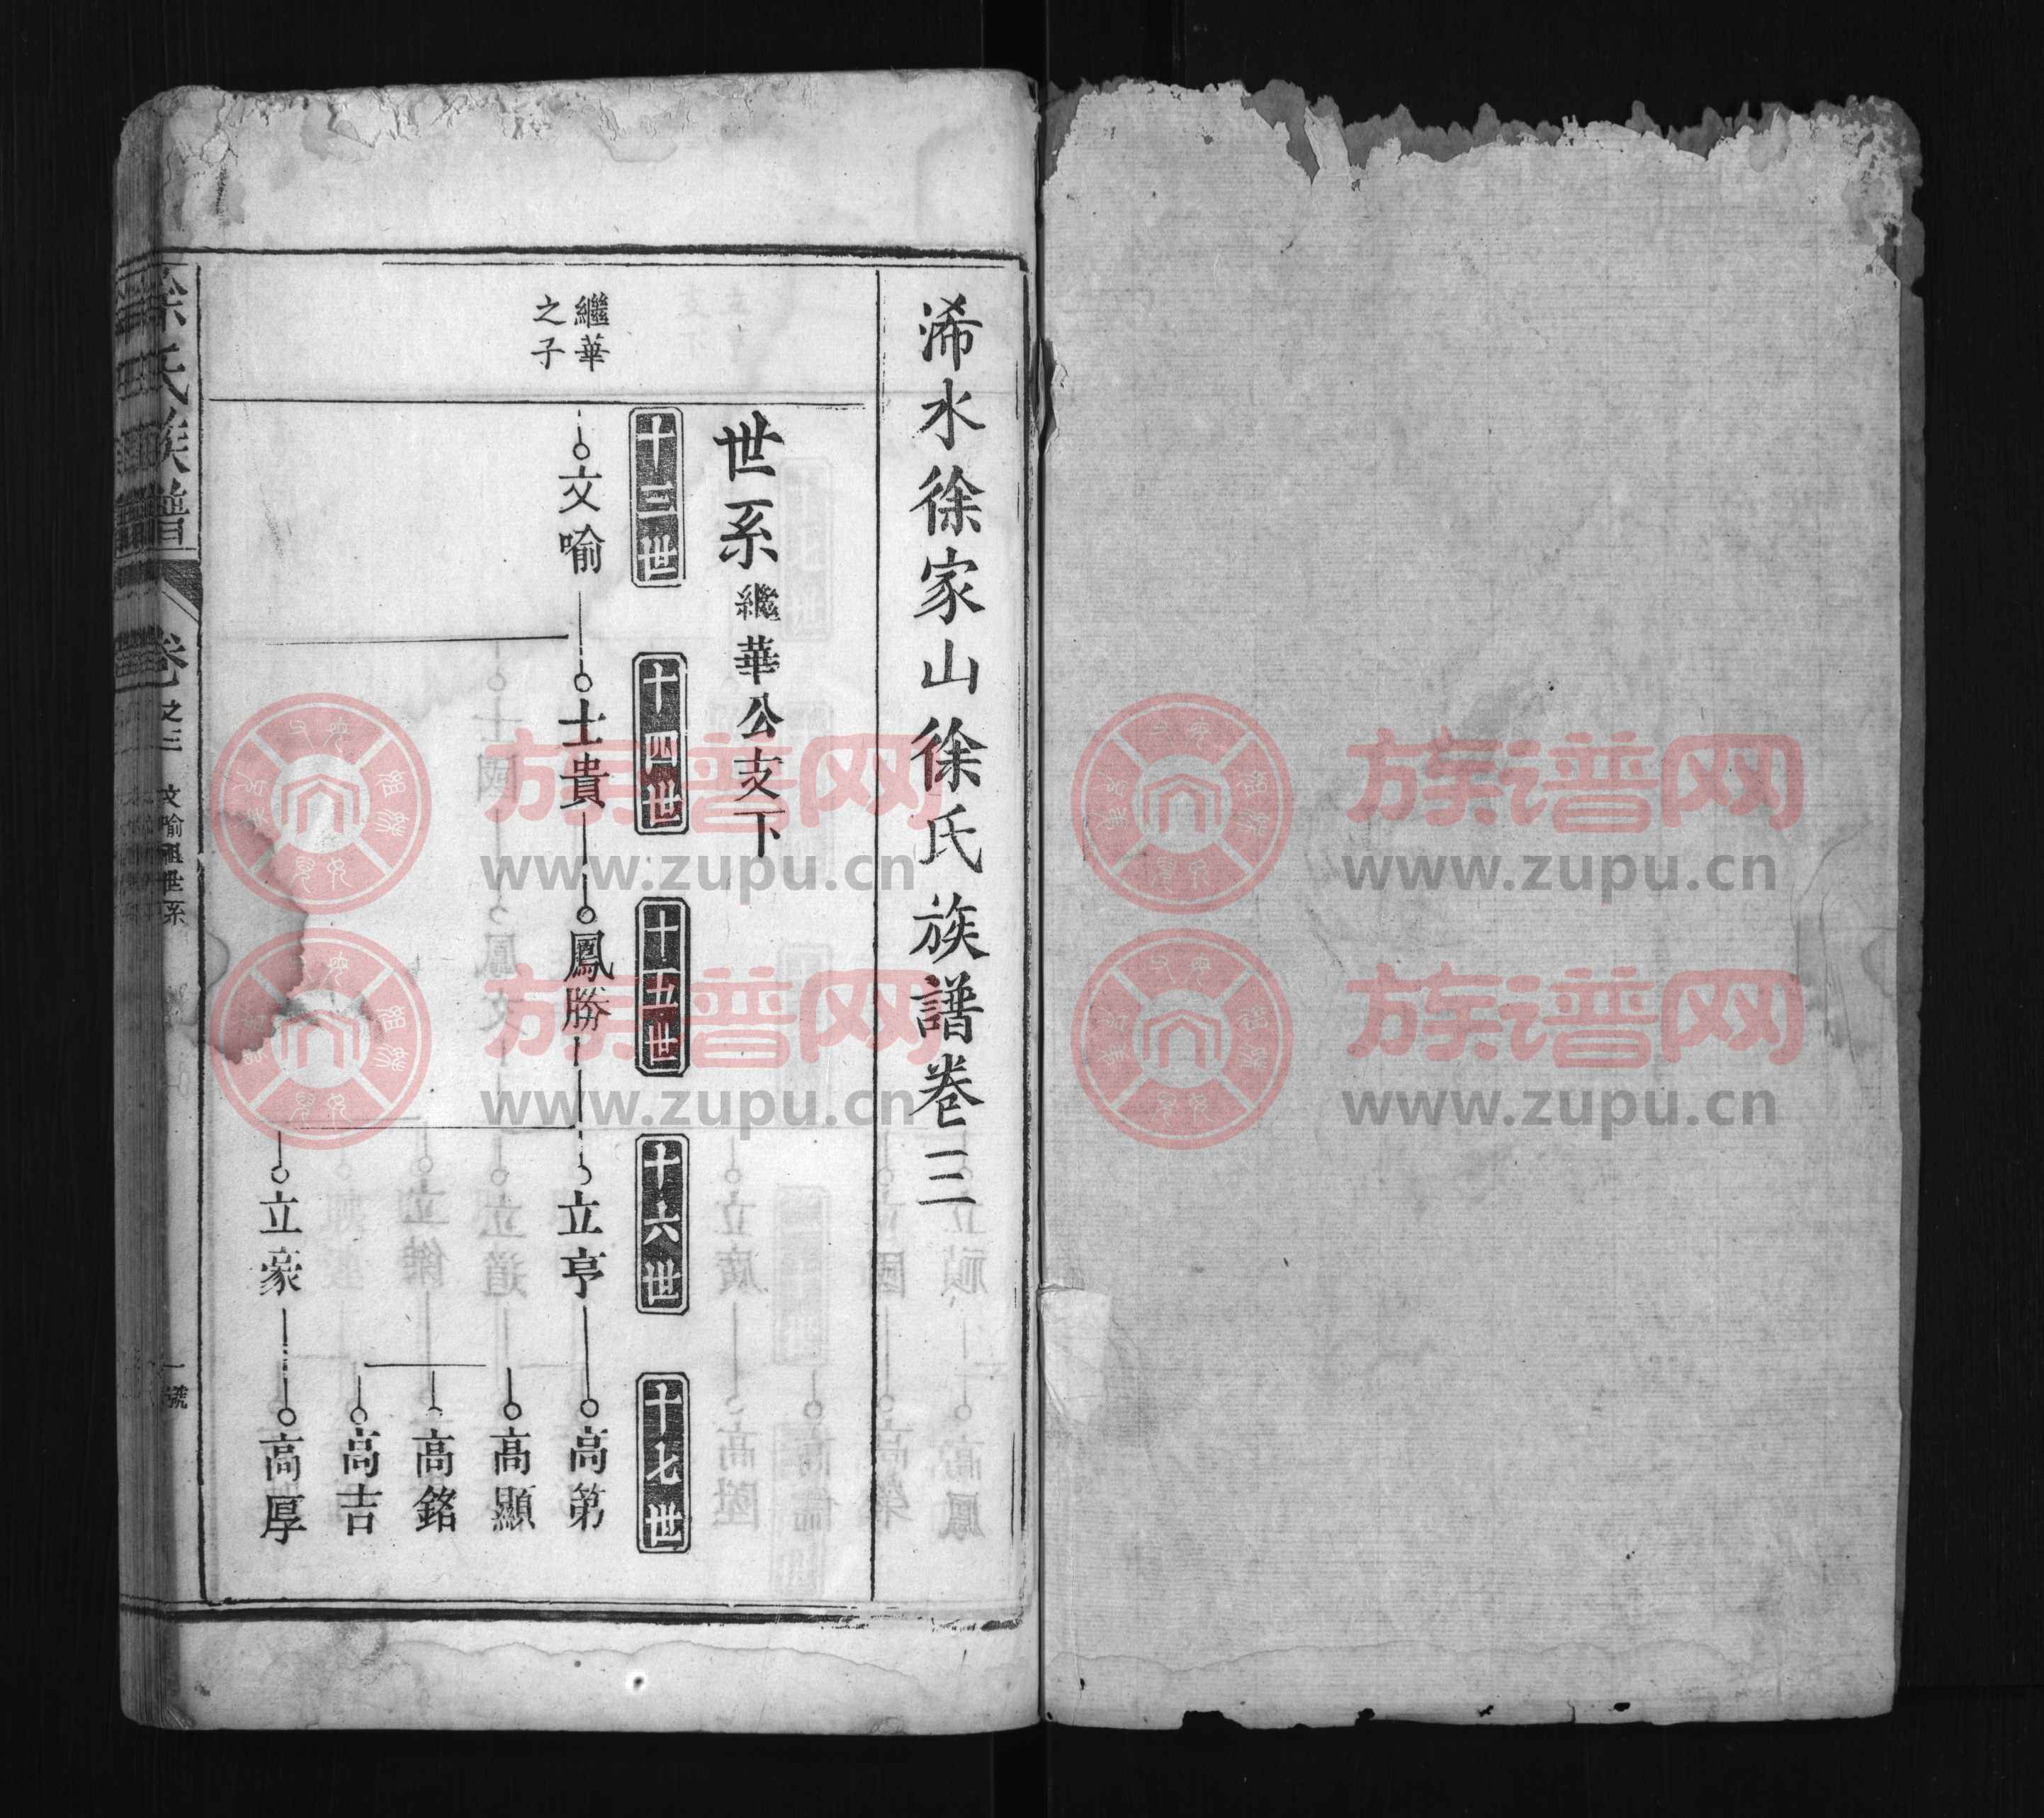 浠水徐家山徐氏族譜卷三
世系繼華公支下
十三世
十四世
十五世
十六世
十七世
繼華
之子
文喻
士貴
鳳勝
立亨
高第
高顯
高銘
高吉
立豪
高厚
徐氏族譜
卷之三
文喻祖世系
一號
族谱网
www.zupu.cn
族谱网
www.zupu.cn
族谱网
www.zupu.cn
族谱网
www.zupu.cn